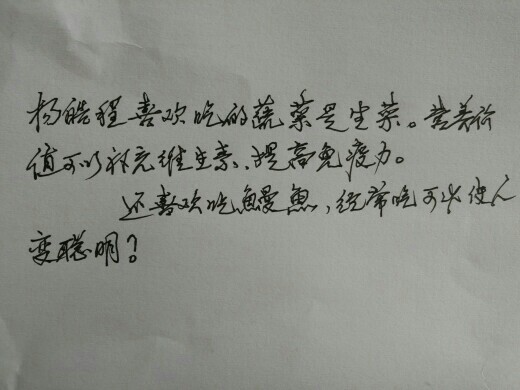 杨皓程喜欢吃的蔬菜是生菜。营养价
值可以补充维生素、提高免疫力。
还喜欢吃鳗鱼，经常吃可以使人
变聪明？